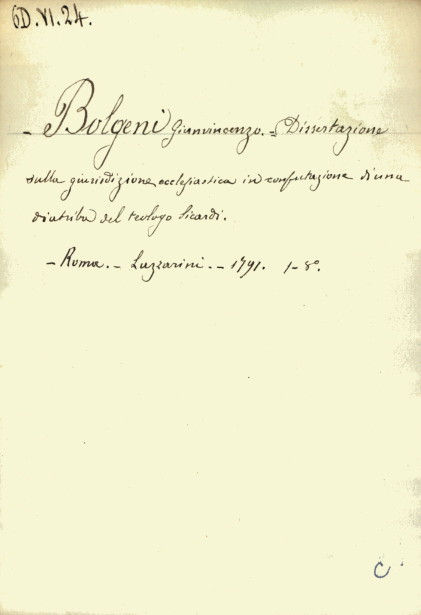 6D.VI.24.
- Bolgeni Gianvincenzo. = Dissertazione
sulla giurisdizione ecclesiastica in confutazione di una
diatriba del teologo Sicardi.
- Roma. - Lazzarini. - 1791. 1-8°.
C